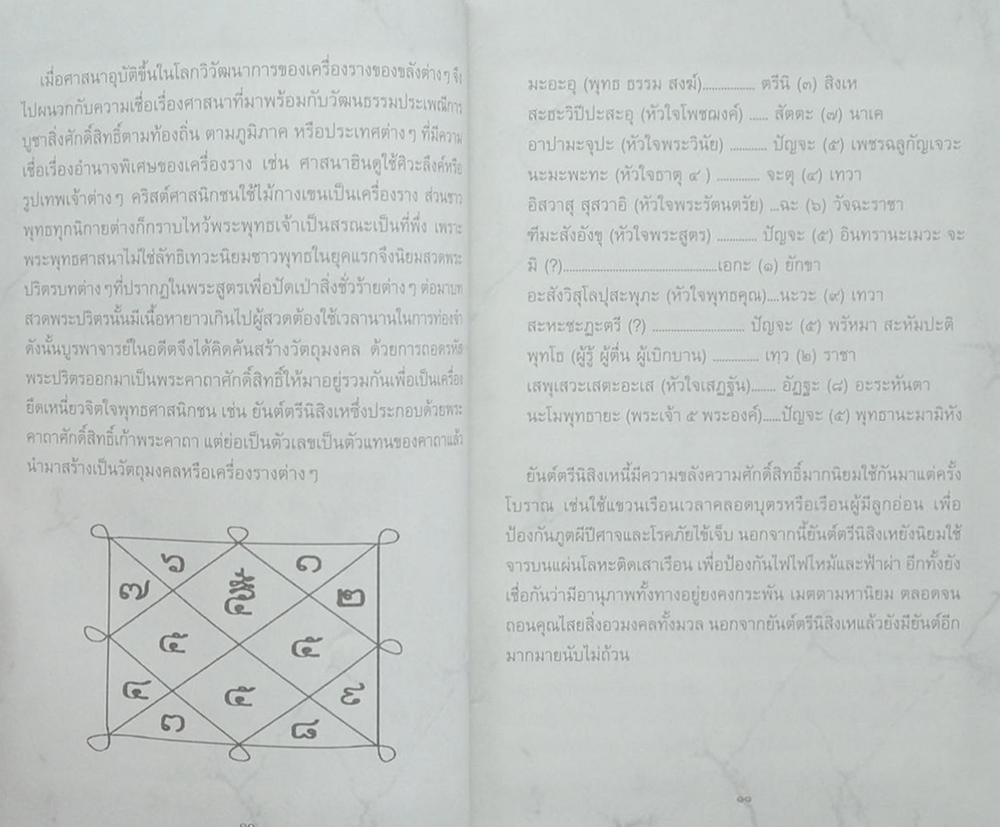 เมื่อศาสนาอุบัติขึ้นในโลกวิวัฒนาการของเครื่องรางของขลังต่างๆ จึง
ไปผนวกกับความเชื่อเรื่องศาสนาที่มาพร้อมกับวัฒนธรรมประเพณีการ
บูชาสิ่งศักดิ์สิทธิ์ตามท้องถิ่น ตามภูมิภาค หรือประเทศต่างๆ ที่มีความ
เชื่อเรื่องอำนาจพิเศษของเครื่องราง เช่น ศาสนาฮินดูใช้ศิวะลึงค์หรือ
รูปเทพเจ้าต่างๆ คริสต์ศาสนิกชนใช้ไม้กางเขนเป็นเครื่องราง ส่วนชาว
พุทธทุกนิกายต่างก็กราบไหว้พระพุทธเจ้าเป็นสรณะเป็นที่พึ่ง เพราะ
พระพุทธศาสนาไม่ใช่ลัทธิเทวะนิยมชาวพุทธในยุคแรกจึงนิยมสวดพระ
ปริตรบทต่างๆที่ปรากฏในพระสูตรเพื่อปัดเป่าสิ่งชั่วร้ายต่างๆ ต่อมาบท
สวดพระปริตรนั้นมีเนื้อหายาวเกินไปผู้สวดต้องใช้เวลานานในการท่องจำ
ดังนั้นบูรพาจารย์ในอดีตจึงได้คิดค้นสร้างวัตถุมงคล ด้วยการถอดรหัส
พระปริตรออกมาเป็นพระคาถาศักดิ์สิทธิ์ให้มาอยู่รวมกันเพื่อเป็นเครื่อง
ยึดเหนี่ยวจิตใจพุทธศาสนิกชน เช่น ยันต์ตรีนิสิงเหซึ่งประกอบด้วยพระ
คาถาศักดิ์สิทธิ์เก้าพระคาถา แต่ย่อเป็นตัวเลขเป็นตัวแทนของคาถาแล้ว
นำมาสร้างเป็นวัตถุมงคลหรือเครื่องรางต่างๆ
๖ ๑
๗ ๒
๕ ๕
๔ ๕ ๙
๓ ๘
มะอะอุ (พุทธ ธรรม สงฆ์)................ ตรีนิ (๓) สิงเห
สะธะวิปีปะสะอุ (หัวใจโพชฌงค์) ...... สัตตะ (๗) นาเค
อาปามะจุปะ (หัวใจพระวินัย) ............ ปัญจะ (๕) เพชรฉลูกัญเจวะ
นะมะพะทะ (หัวใจธาตุ ๔ ) ............. จะตุ (๔) เทวา
อิสวาสุ สุสวาอิ (หัวใจพระรัตนตรัย) ...ฉะ (๖) วัจฉะราชา
ทีมะสังอังขุ (หัวใจพระสูตร) ............ ปัญจะ (๕) อินทรานะเมวะ จะ
มิ (?)...........................................เอกะ (๑) ยักขา
อะสังวิสุโลปุสะพุภะ (หัวใจพุทธคุณ)....นะวะ (๙) เทวา
สะหะชะฏะตรี (?) ........................... ปัญจะ (๕) พรัหมา สะหัมปะติ
พุทโธ (ผู้รู้ ผู้ตื่น ผู้เบิกบาน) .............. เทฺว (๒) ราชา
เสพุเสวะเสตะอะเส (หัวใจเสฏฐัน)........ อัฏฐะ (๘) อะระหันตา
นะโมพุทธายะ (พระเจ้า ๕ พระองค์)......ปัญจะ (๕) พุทธานะมามิหัง
ยันต์ตรีนิสิงเหนี้มีความขลังความศักดิ์สิทธิ์มากนิยมใช้กันมาแต่ครั้ง
โบราณ เช่นใช้แขวนเรือนเวลาคลอดบุตรหรือเรือนผู้มีลูกอ่อน เพื่อ
ป้องกันภูตผีปีศาจและโรคภัยไข้เจ็บ นอกจากนี้ยันต์ตรีนิสิงเหยังนิยมใช้
จารบนแผ่นโลหะติดเสาเรือน เพื่อป้องกันไฟไหม้และฟ้าผ่า อีกทั้งยัง
เชื่อกันว่ามีอานุภาพทั้งทางอยู่ยงคงกระพัน เมตตามหานิยม ตลอดจน
ถอนคุณไสยสิ่งอวมงคลทั้งมวล นอกจากยันต์ตรีนิสิงเหแล้วยังมียันต์อีก
มากมายนับไม่ถ้วน
๑๑